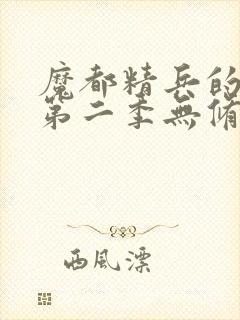 魔都精兵的
第二季無脩
西風漂